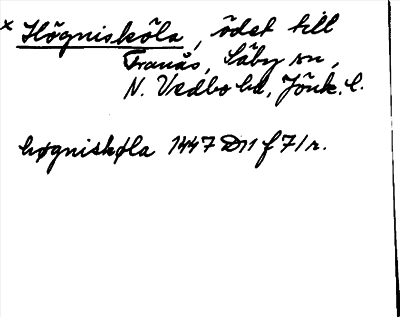 x Högnisköla, ödet till
Tranås, Säby sn,
N. Vedbo hd, Jönk. l.
høgniskøla 1447 D11 f 71 r.